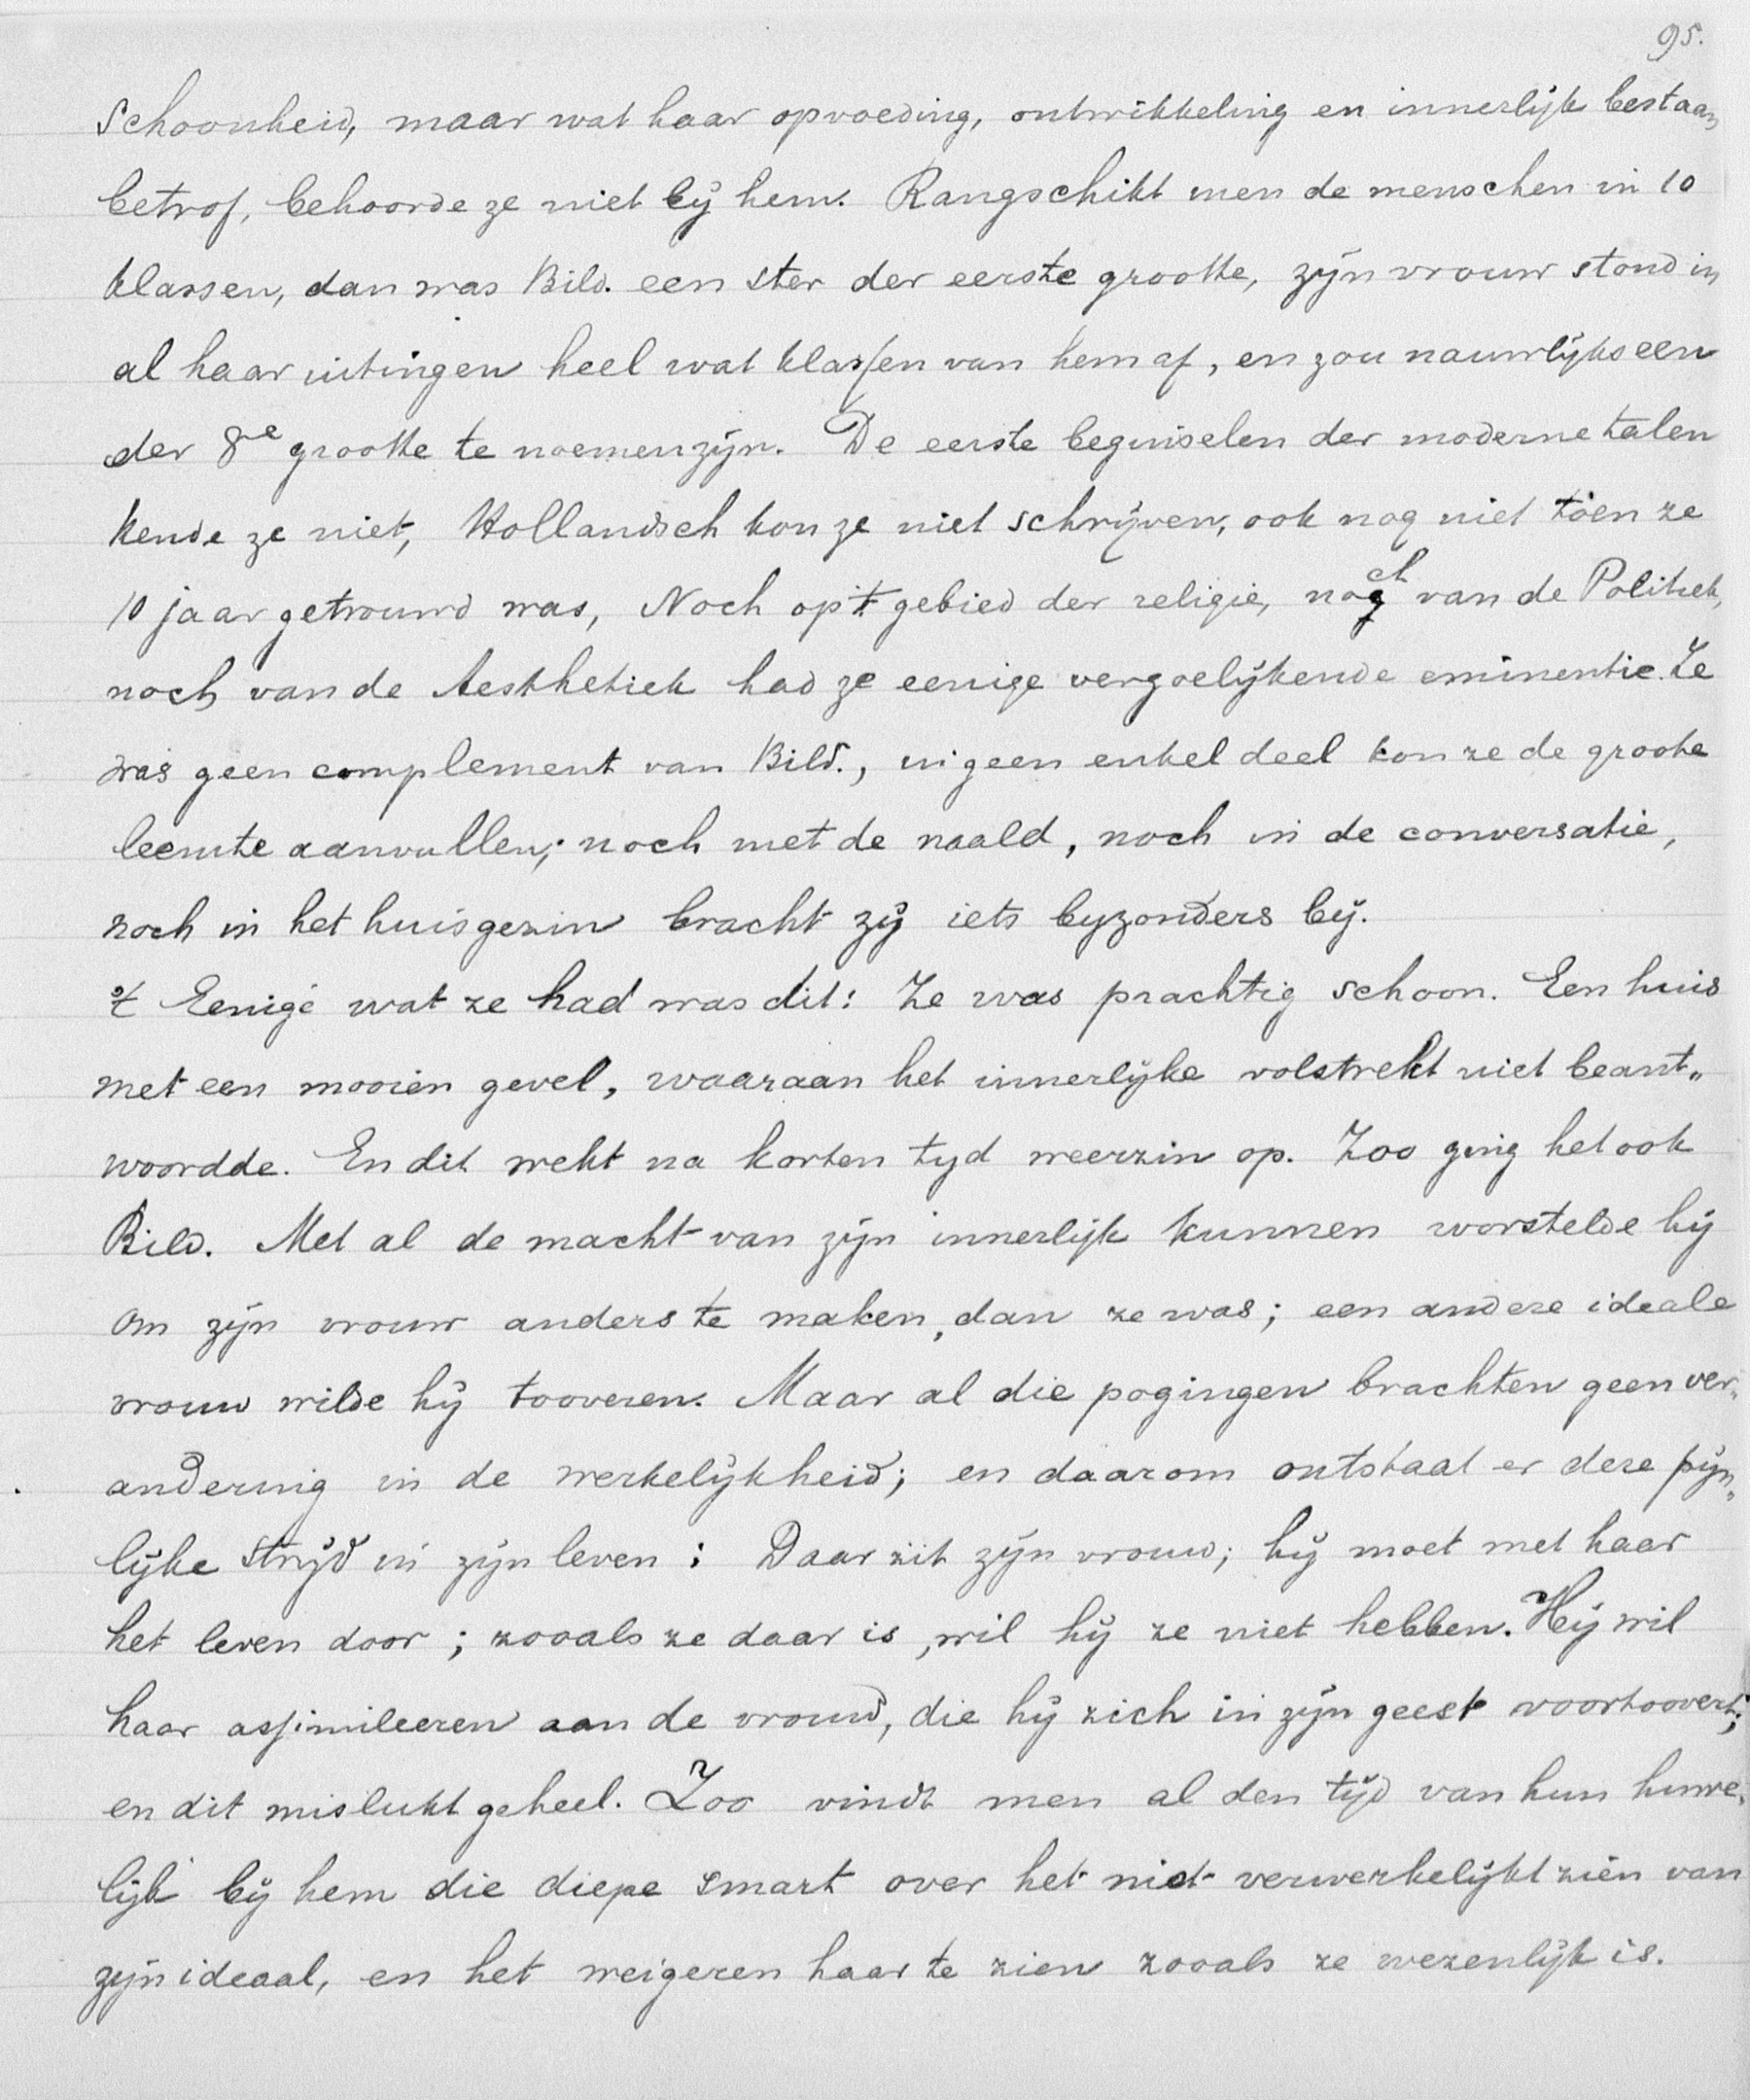 95.
Schoonheid, maar wat haar opvoeding, ontwikkeling en innerlijk bestaan
betrof, behoorde ze niet bij hem. Rangschikt men de menschen in 10
klassen, dan was Bild. een ster der eerste grootte, zijn vrouw stond in
al haar uitingen heel wat klassen van hem af, en zou nauwlijks een
der 8e grootte te noemen zijn. De eerste beginselen der moderne talen
kende ze niet, Hollandsch kon ze niet schrijven, ook nog niet toen ze
10 jaar getrouwd was, Noch op 't gebied der religie, noch van de Politiek,
noch van de Aesthetiek had ze eenige vergoelijkende eminentie. Ze
was geen complement van Bild., in geen enkel deel kon ze de groote
leemte aanvullen; noch met de naald, noch in de conversatie,
noch in het huisgezin bracht zij iets byzonders bij.
't Eenige wat ze had was dit: Ze was prachtig schoon. Een huis
met een mooien gevel, waaraan het innerlijke volstrekt niet beant„
woordde. En dit wekt na korten tyd weerzin op. Zoo ging het ook
Bild. Met al de macht van zijn innerlijk kunnen worstelde hij
om zijn vrouw anders te maken, dan ze was; een andere ideale
vrouw wilde hij tooveren. Maar al die pogingen brachten geen ver„
andering in de werkelijkheid; en daarom ontstaat er deze pijn„
lijke strijd in zijn leven: Daar zit zijn vrouw; hij moet met haar
het leven door; zooals ze daar is, wil hij ze niet hebben. Hij wil
haar assimileeren aan de vrouw, die hij zich in zijn geest voortoovert;
en dit mislukt geheel. Zoo vindt men al den tijd van hun huwe„
lijk bij hem die diepe smart over het niet verwerkelijkt zien van
zijn ideaal, en het weigeren haar te zien zooals ze wezenlijk is.